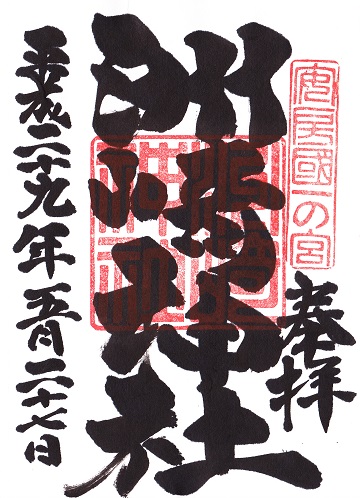 安房國一の宮
奉拝
洲崎神社
平成二十九年五月二十七日